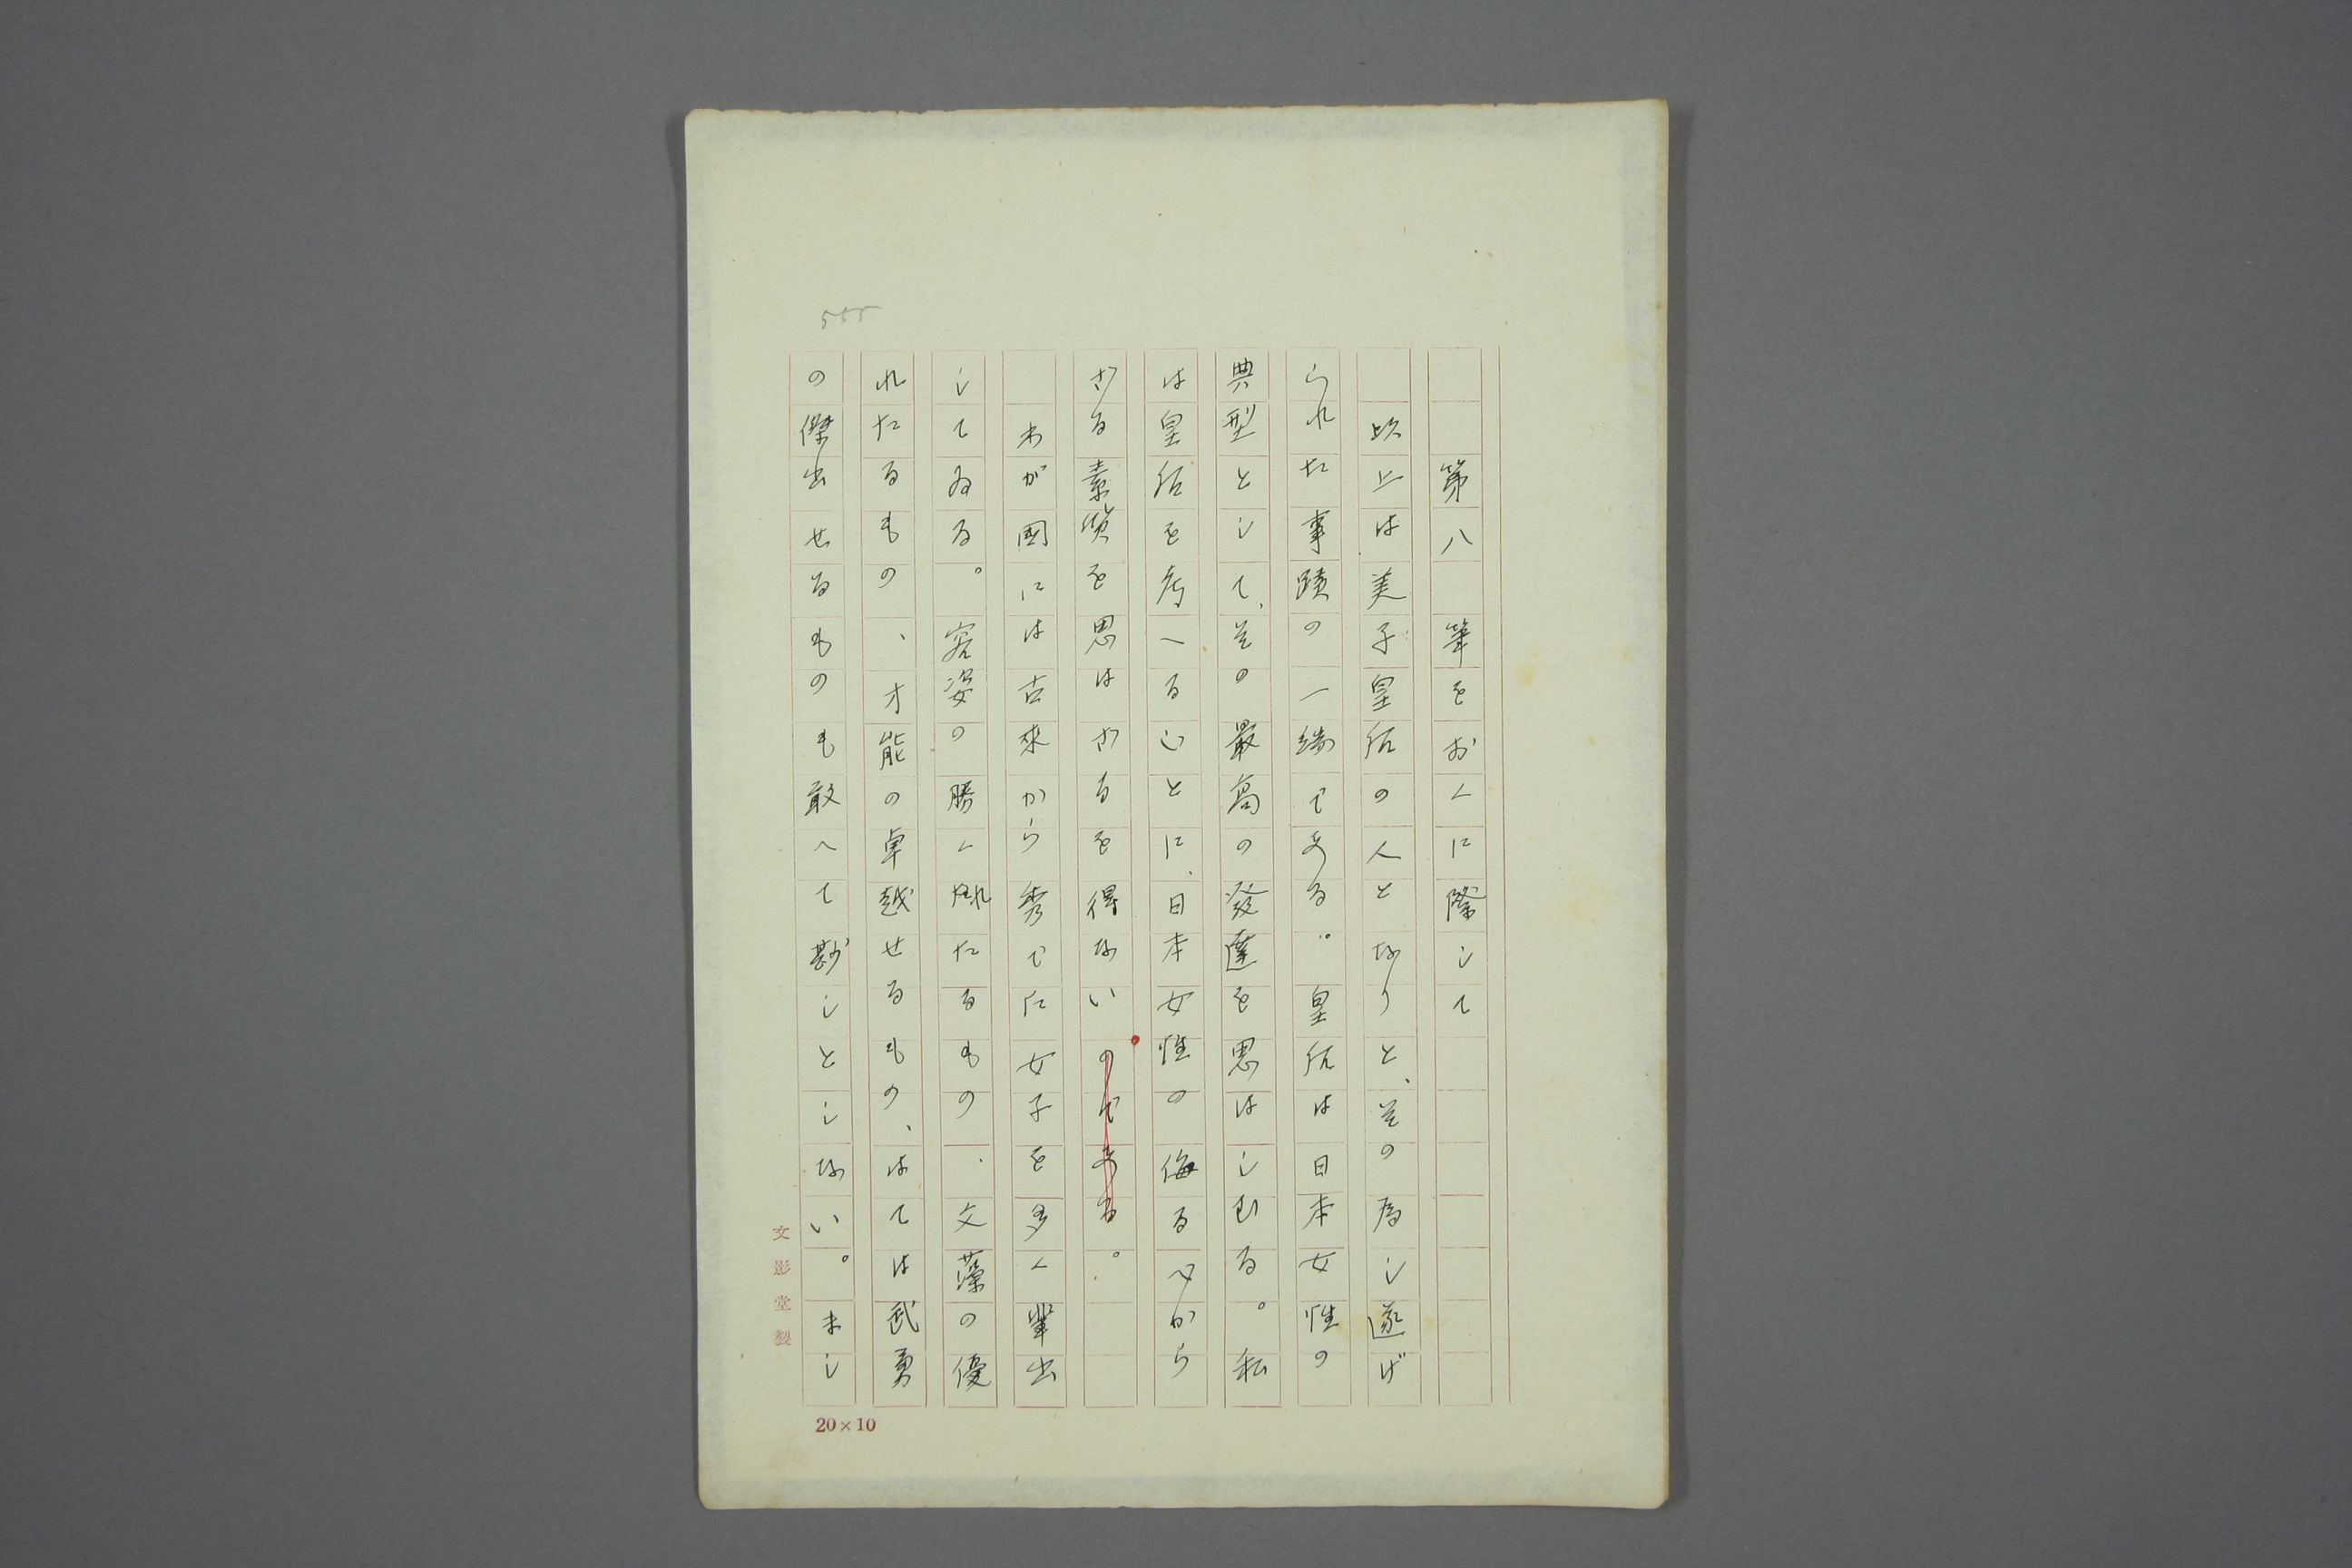 555
第八　筆をおくに際して
以上は美子皇后の人となりと、その為し遂げ
られた事蹟の一端である。皇后は日本女性の
典型として、その最高の發達を思はしむる。私
は皇后を考へるごとに、日本女性の侮るべから
ざる素質を思はざるを得ないのである。
わが國には古來から秀でた女子を多く輩出
してゐる。容姿の勝くれたるもの、文藻の優
れたるもの、才能の卓越せるもの、はては武勇
の傑出せるものも敢へて尠しとしない。まし
文影堂製
20×10